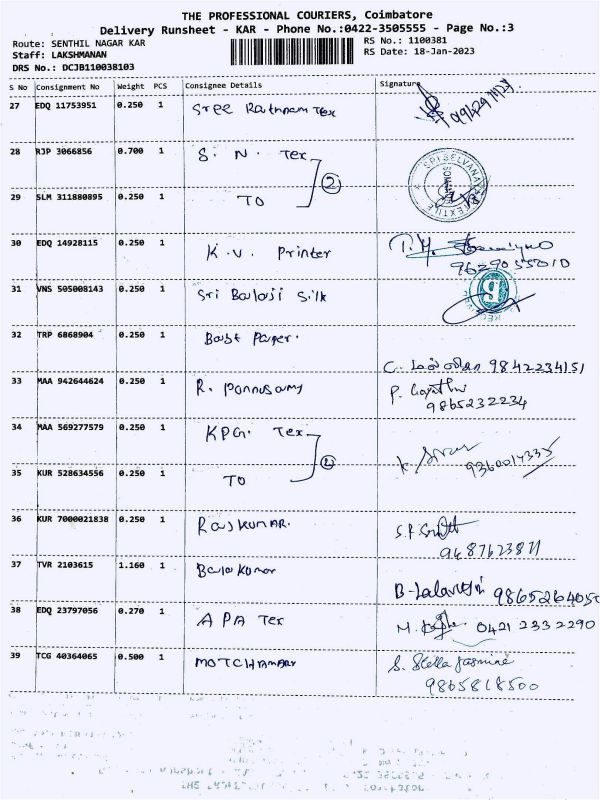 THE PROFESSIONAL COURIERS, Coimbatore
Delivery Runsheet - KAR - Phone No.:0422-3505555 - Page No.:3
Route: SENTHIL NAGAR KAR
RS No.: 1100381
Staff: LAKSHMANAN
RS Date: 18-Jan-2023
DRS No.: DCJB110038103
S No Consignment No Weight PCS Consignee Details Signature
27 EDQ 11753951 0.250 1 Sree Rathnam Tex
28 RJP 3066856 0.700 1 S. N. Tex
29 SLM 311880895 0.250 1 TO 2
30 EDQ 14928115 0.250 1 K.V. Printer
9629055010
31 VNS 505008143 0.250 1 Sri Balaji Silk
32 TRP 6868904 0.250 1 Best Paper.
9842234151
33 MAA 942644624 0.250 1 R. Ponnusamy
9865232234
34 MAA 569277579 0.250 1 KPG. Tex
9360017335
35 KUR 528634556 0.250 1 TO
36 KUR 7000021838 0.250 1 Rajkumar.
37 TVR 2103615 1.160 1 Bala Kumar
9865264050
38 EDQ 23797056 0.270 1 APA Tex
0421 2332290
39 TCG 40364065 0.500 1
S. Stella Jasmine
9865818500